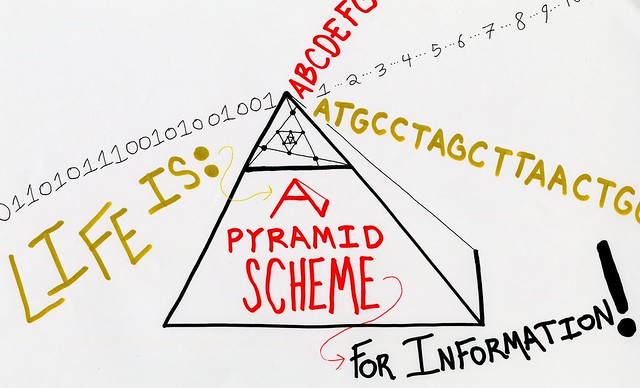 ABCDEFG
1...2...3...4...5...6...7...8...9...10
01101011100101001001
ATGCCTAGCTTAACTG
LIFE IS:
A
PYRAMID
SCHEME
FOR INFORMATION!